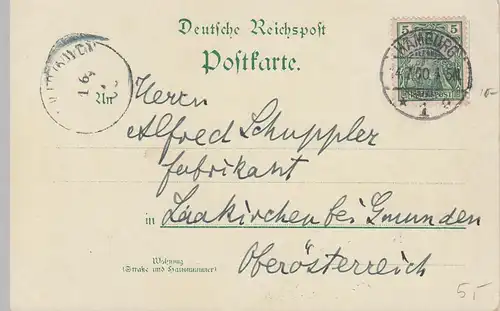 Deutsche Reichspost
Postkarte.
5 5
HAMBURG
1
An
Herrn
Alfred Schuppler
Fabrikant
in Laakirchen bei Gmunden
Oberösterreich
Wohnung
(Straße und Hausnummer)
5,-